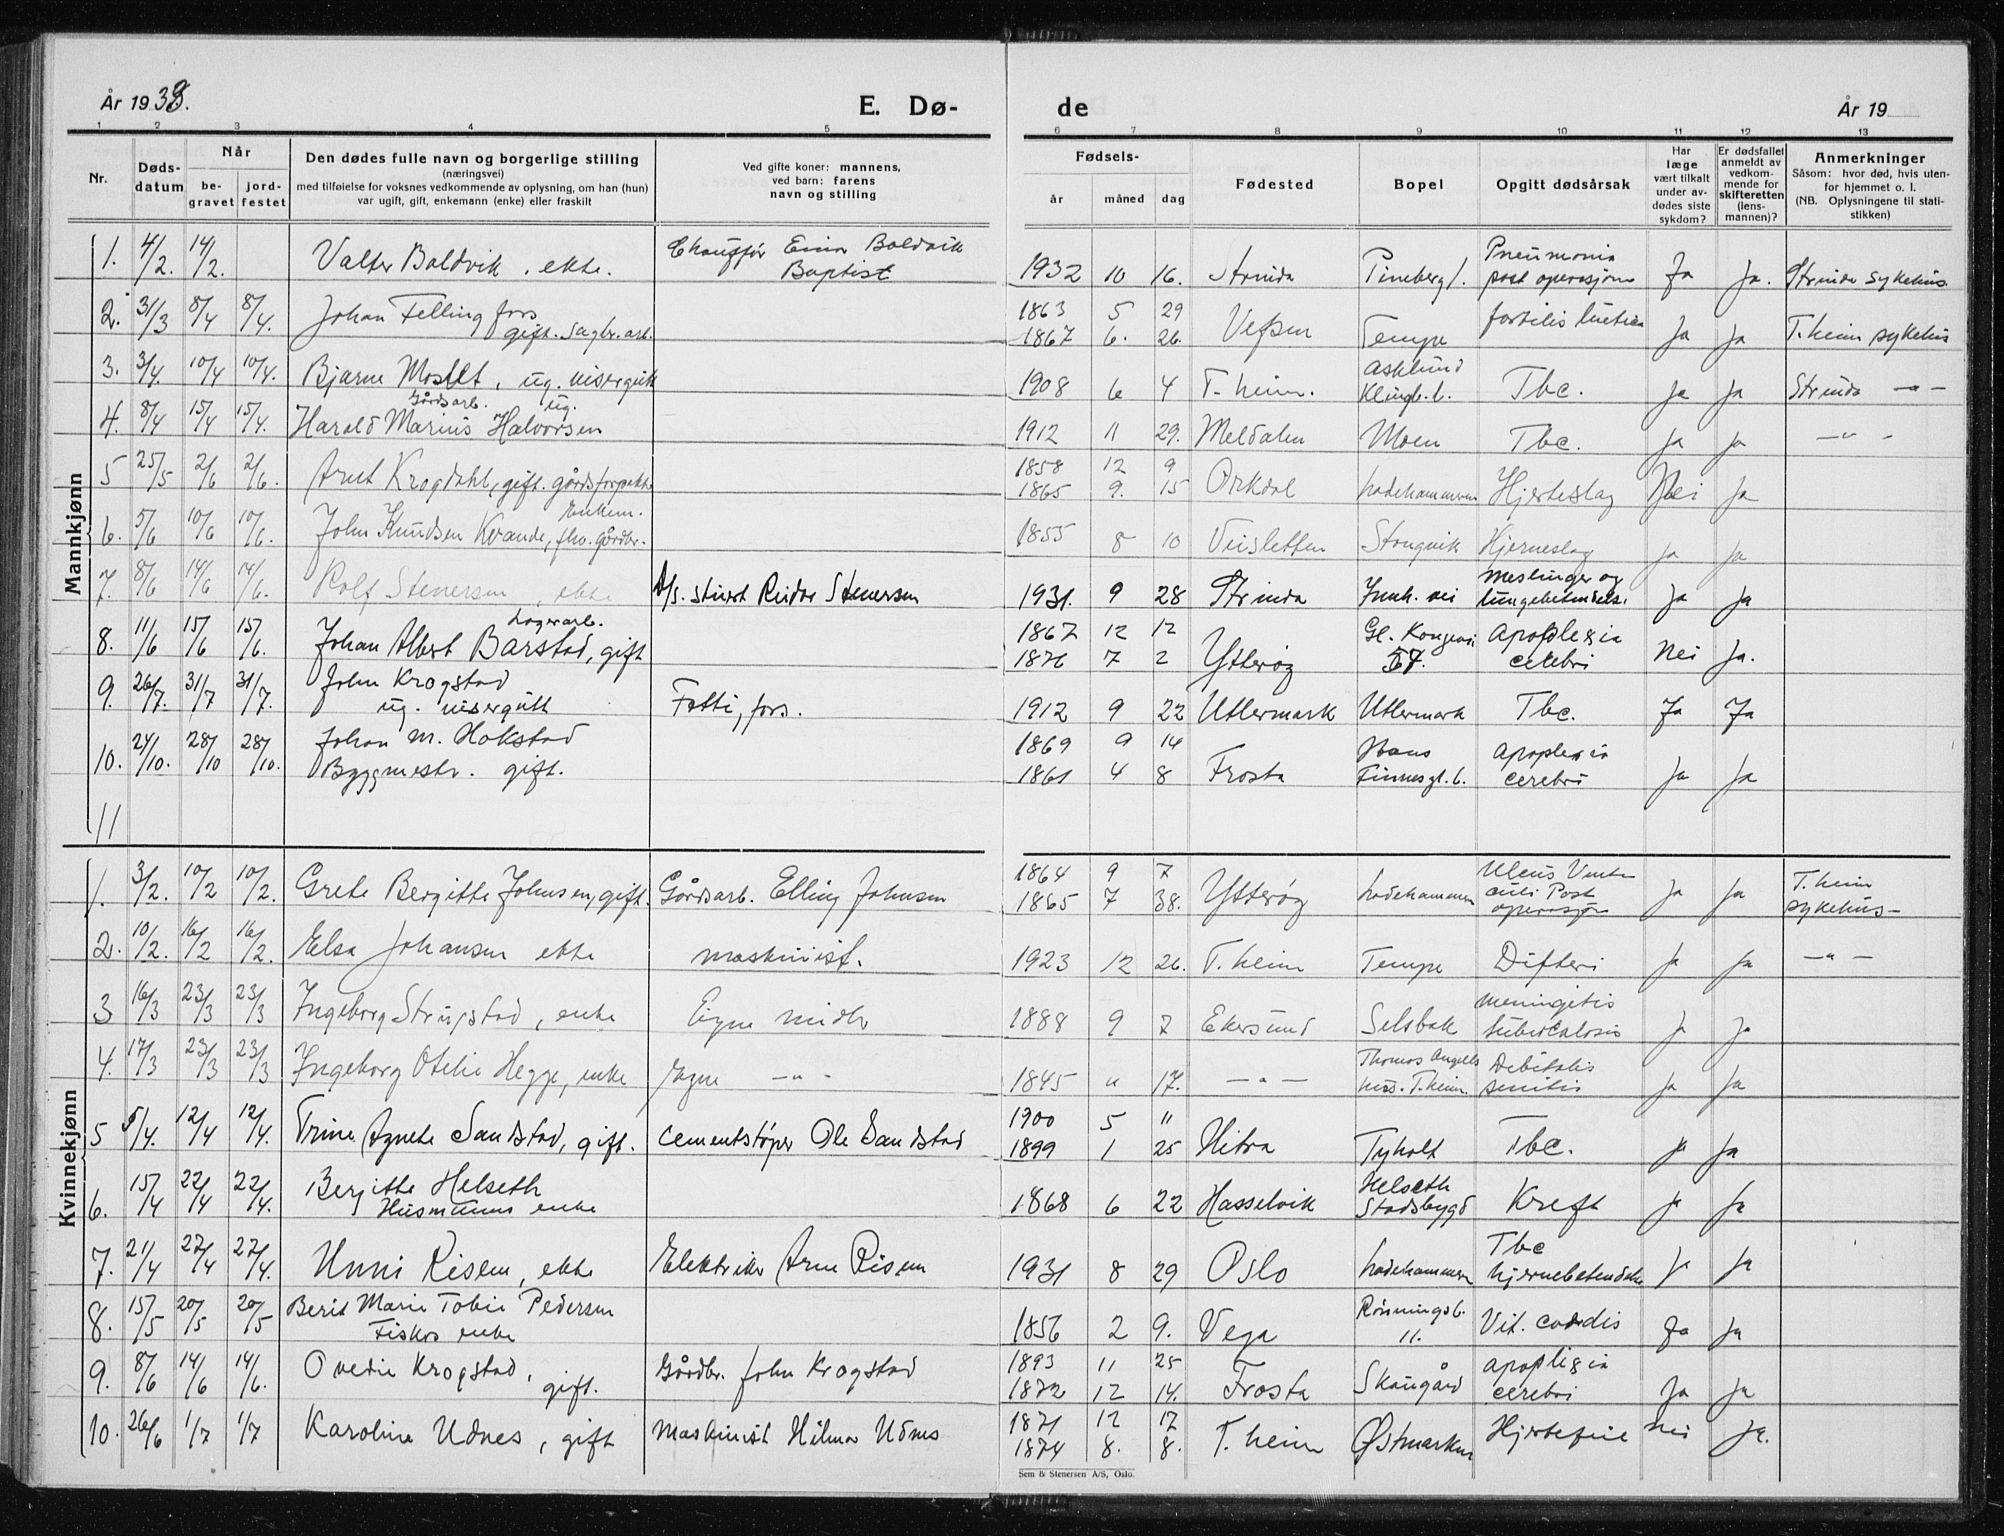 År 1938.
E. Dø-
de
År 19
1 2 3 4 5 6 7 8 9 10 11 12 13
Nr.
Døds-
datum
Når
be-
gravet
jord-
festet
Den dødes fulle navn og borgerlige stilling
(næringsvei)
med tilføielse for voksnes vedkommende av oplysning, om han (hun)
var ugift, gift, enkemann (enke) eller fraskilt
Ved gifte koner: mannens,
ved barn: farens
navn og stilling
Fødsels-
år måned dag
Fødested
Bopel
Opgitt dødsårsak
Har
læge
vært tilkalt
under av-
dødes siste
sykdom?
Er dødsfallet
anmeldt av
vedkom-
mende for
skifteretten
(lens-
mannen)?
Anmerkninger
Såsom: hvor død, hvis uten-
for hjemmet o. l.
(NB. Oplysningene til stati-
stikken)
Mannkjønn
1. 4/2. 14/2. Valter Boldvik, ekte. Chauffør Einar Boldvik
Baptist
1932 10 16. Strinda Pinebergl. Pneumonia
post operasjon Ja Ja. Strinda sykehus.
2. 31/3 8/4 8/4. Johan Fellingfors
gift. Sagbr. arb.
1863 5 29
1867 6. 26. Vefsen Tempe Ja Ja T.heim sykehus
3. 3/4. 10/4 10/4. Bjarne Moslet, ug. visergutt
1908 6 4 T.heim. Asklund
Klingb. b. Tbc. Ja Ja Strinda -"-
4. 8/4 15/4 15/4. Gårdsarb. ug.
Harald Marius Halvorsen
1912 11 29. Meldalen Moen Tbc. Ja Ja -"-
5 25/5 2/6 2/6. Arnt Krogdahl, gift. gårdsforpakter
1858 12 9
1865 9. 15 Orkdal Ladehammeren Hjerteslag Nei Ja
6. 5/6 10/6 10/6. Enkem.
John Knudsen Kvande, fhv. gårdbr.
1855 8 10 Stangvik Hjerneslag Ja Ja
7. 8/6 14/6 14/6. Rolf Stenersen, ekte Reidar Stenersen
1931. 9 28 Strinda Innh. vei Meslinger og
lungebetendelse. Ja Ja
8. 11/6 15/6 15/6. Lagerarb.
Johan Albert Barstad, gift
1867 12 12
1876 7 2 Ytterøy Gl. Kongevei
57. Apoplexia
cerebri Nei Ja.
9. 26/7. 31/7 31/7. John Krogstad
ug. visergutt Fatti, fors.
1912 9 22 Utlermark Utlermark Tbc. Ja Ja
10. 24/10. 28/10 28/10. Johan M. Hokstad
Byggmestr. gift.
1869 9 14
1861 4 8 Frosta Hans
Finnesgt. 6. Apoplexia
cerebri Ja Ja
11
Kvinnekjønn
1. 3/2. 10/2 10/2. Grete Bergitte Johnsen, gift. Gårdsarb. Elling Johnsen
1864 9 7
1865 7 38. Ytterøy Ladehammeren Ulcus Ventri
culi Post
operasjon Ja Ja T.heim
sykehus-
2. 10/2. 16/2 16/2. Elsa Johansen ekte maskinist.
1923 12 26. T.heim Tempe Difteri Ja Ja -"-
3 16/3 23/3 23/3 Ingeborg Strugstad, enke Egne midler
1888 9 7 Ekersund Selsbak Meningitis
tuberculosis Ja Ja
4. 17/3 23/3 23/3 Ingeborg Otelie Hegge, enke Egne -"-
1845 " 17. -"- Thomas Angells
hus. T.heim. Debilitalis
senilis Ja Ja
5 5/4. 12/4 12/4. Trine Agnete Sandstad, gift. Cementstøper Ole Sandstad
1900 5 11
1899 1 25 Hitra Tyholt Tbc. Ja Ja
6. 15/4 22/4 22/4. Bergitte Helseth
Husmanns enke
1868 6 22 Hasselvik Helseth
Stadsbygd Kreft Ja Ja
7. 21/4 27/4 27/4. Unni Risem, ekte Elektriker Arne Risem
1931 8 29 Oslo Ladehammeren Tbc
hjernebetendelse Ja Ja
8. 15/5 20/5 20/5 Berit Marie Tobie Pedersen
Fiskers enke
1856 2 9. Vega Rønningsb.
11. Vit. cordis Ja Ja
9. 8/6 14/6 14/6. Ovedie Krogstad,
gift. Gårdbr. John Krogstad
1893 11 25
1872 12 14. Frosta Skaugård Apoplexia
cerebri Ja Ja
10. 26/6 1/7 1/7 Karoline Udnes, gift Maskinist Hilmar Udnes
1871 12 17
1874 8. 8. T.heim Østmarken Hjertefeil Nei Ja.
Sem & Stenersen A/S, Oslo.